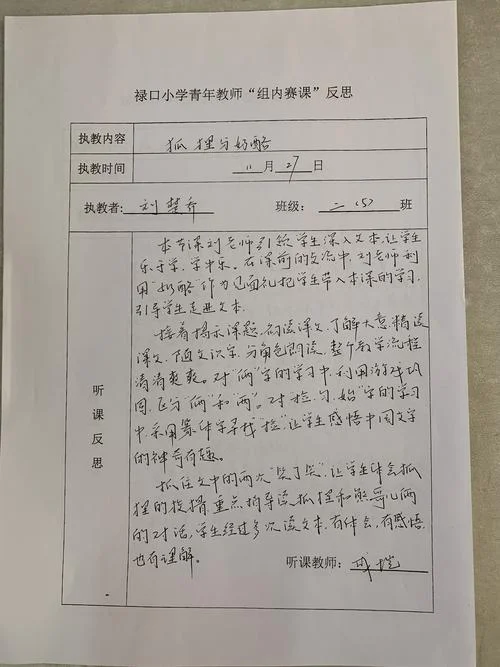 禄口小学青年教师“组内赛课”反思
执教内容 狐狸与奶酪
执教时间 11月27日
执教者: 刘楚乔 班级: 二(5)班
听课反思
本节课刘老师引领学生深入文本,让学生
乐于学,学中乐。在课前的交流中,刘老师利
用“奶酪”作为见面礼把学生带入本课的学习,
引导学生走进文本。
接着揭示课题,初读课文,了解大意,精读
课文,随文识字,分角色朗读,整个教学流程
清清爽爽。对“俩”字的学习中,利用游戏巩
固,区分“俩”和“两”。对“捡、匀、始”字的学习
中,采用篆体字寻找“捡”,让学生感悟中国文字
的神奇有趣。
抓住文中的两次“笑了笑”,让学生体会狐
狸的狡猾,重点指导读狐狸和熊哥儿俩
的对话,学生经过多次读文本,有体会,有感悟,
也有理解。
听课教师: